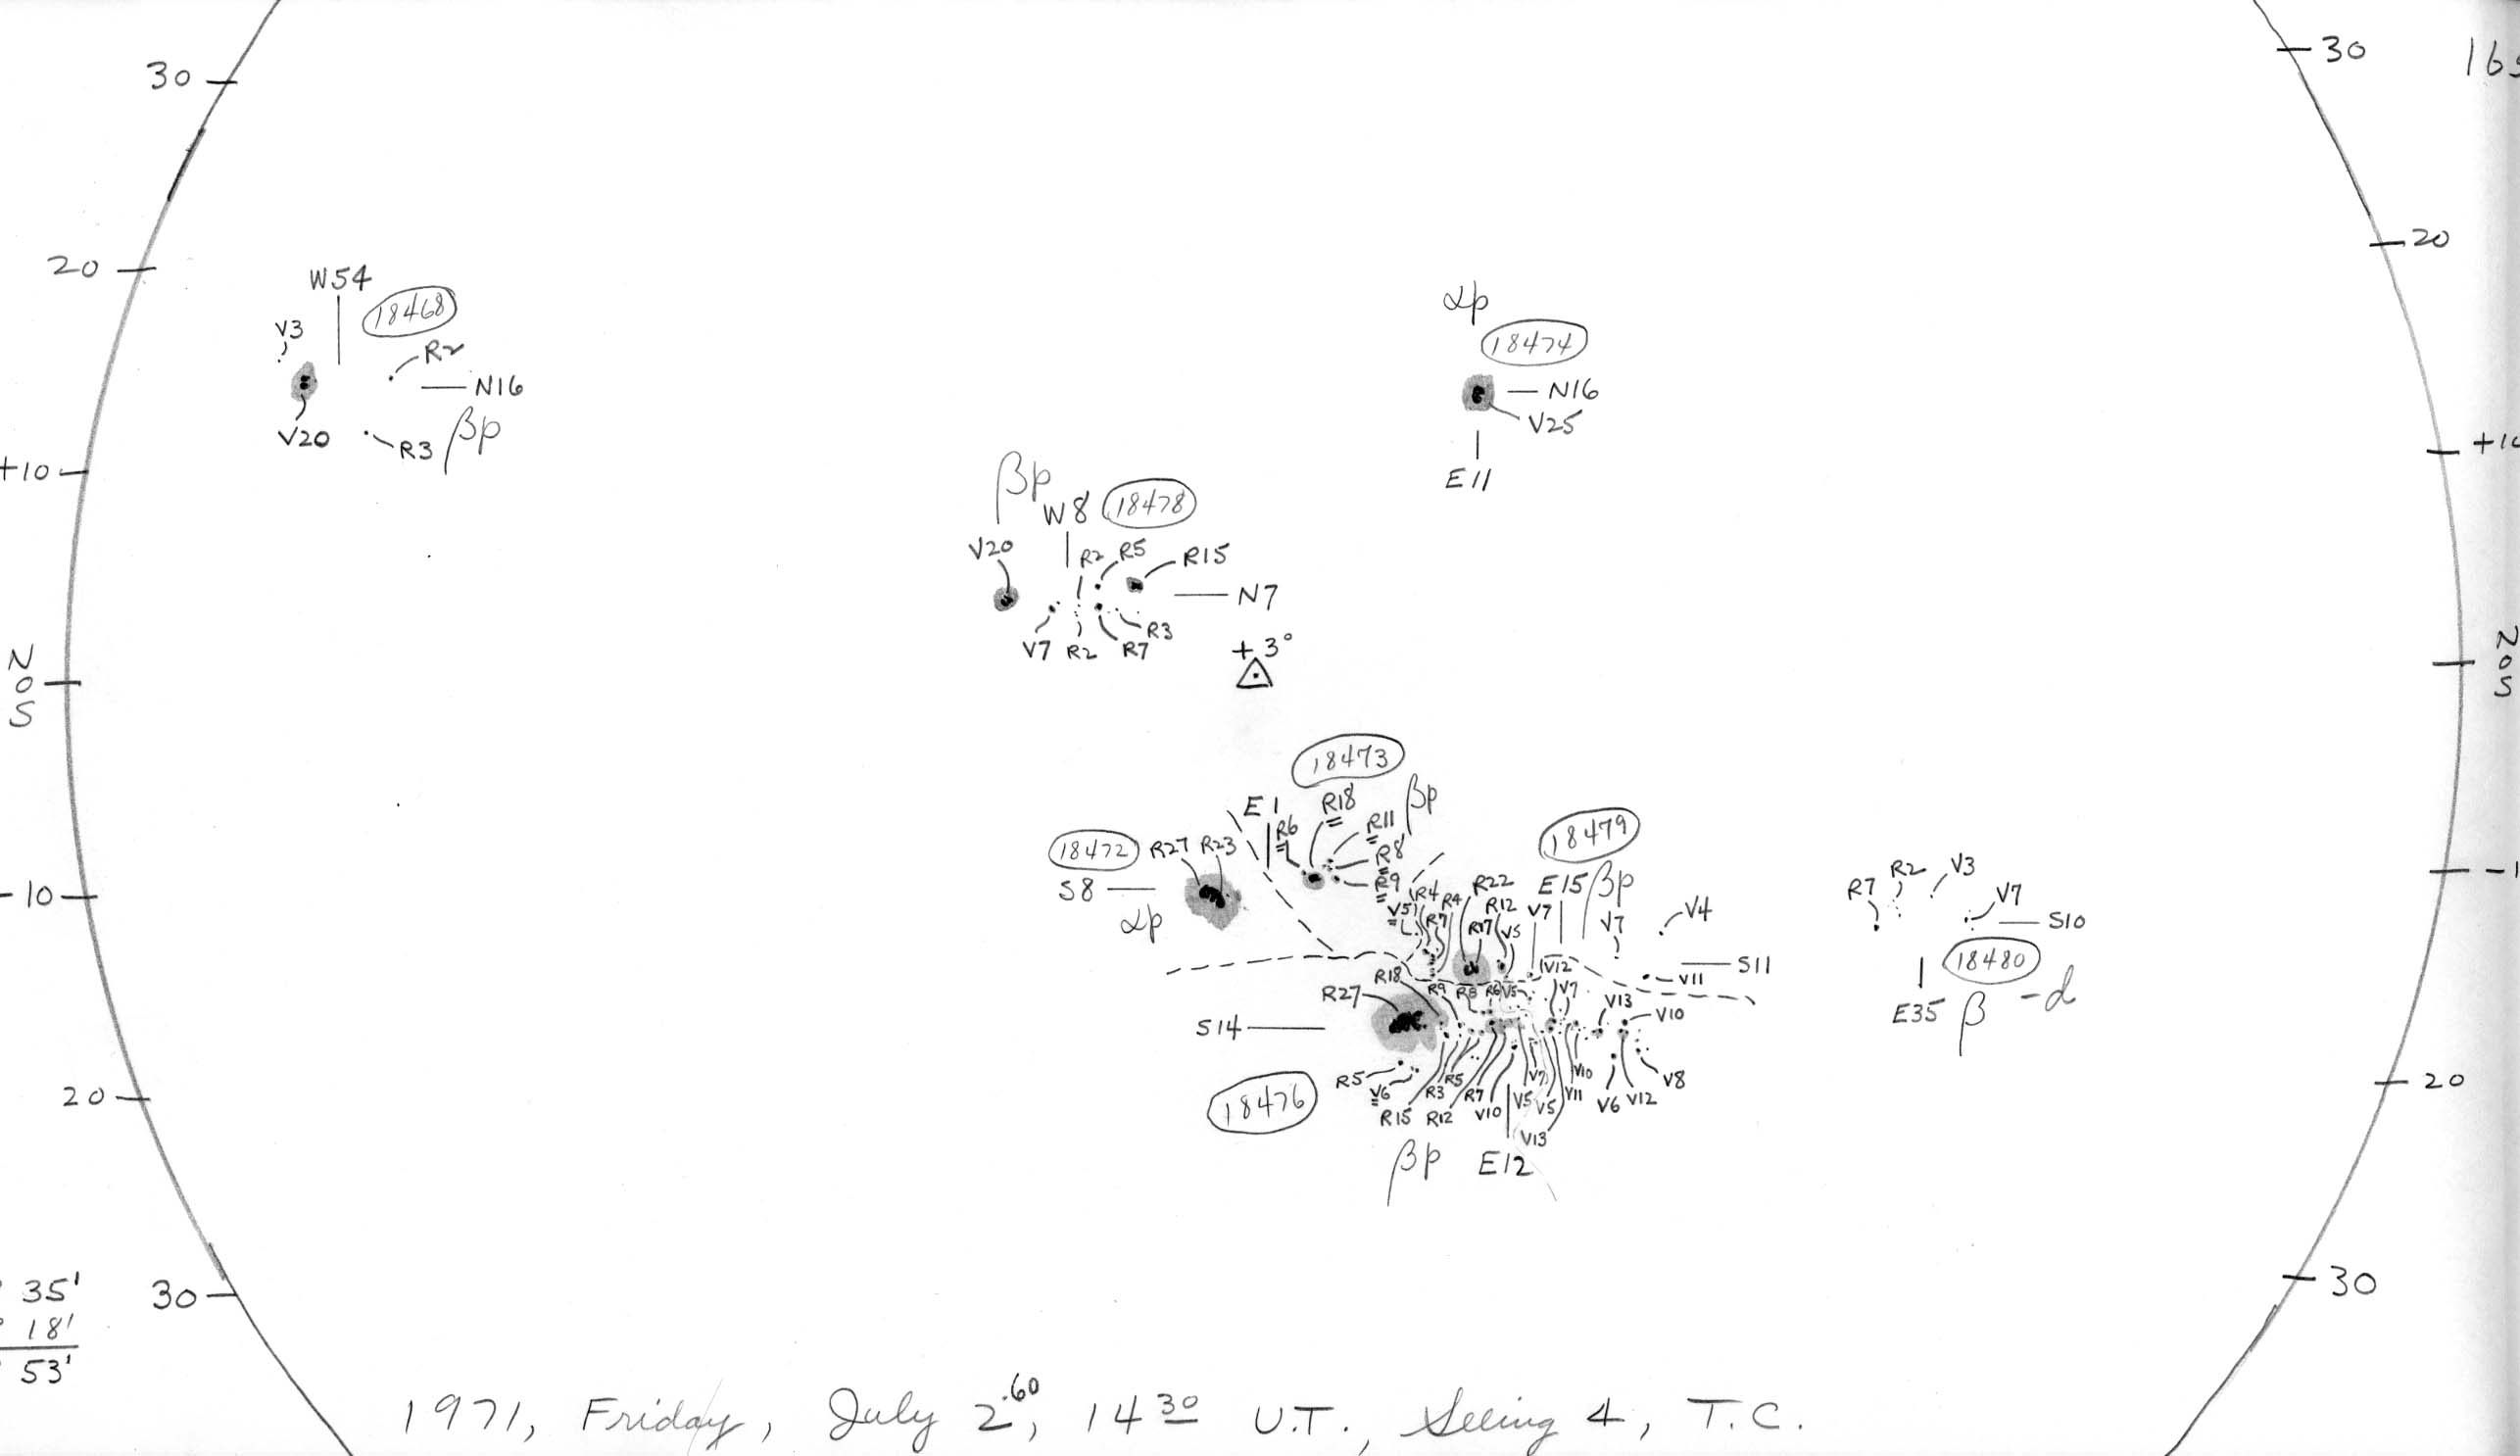 30
30
20
20
W54
18468
V3
R2
N16
V20
R3
βp
+10
αp
18474
N16
V25
E11
βp
W8
18478
V20
R2
R5
R15
N7
V7
R2
R7
R3
+3°
N
0
S
N
0
S
18473
E1
R6
R18
R11
βp
R8
R9
18472
R27
R23
S8
αp
18479
R4
R4
R22
E15
βp
V5
R7
R12
V7
R17
V5
V7
V4
V12
S11
V11
R7
R2
V3
V7
S10
18480
E35
β
-d
-10
R18
R9
R8
R6
V5
V7
V13
R27
V10
S14
R5
V6
R3
R5
V7
V10
V8
R15
R12
R7
V10
V5
V5
V11
V6
V12
V13
18476
βp
E12
20
20
35'
18'
53'
30
30
1971, Friday, July 2.60, 14 30 U.T., Seeing 4, T.C.